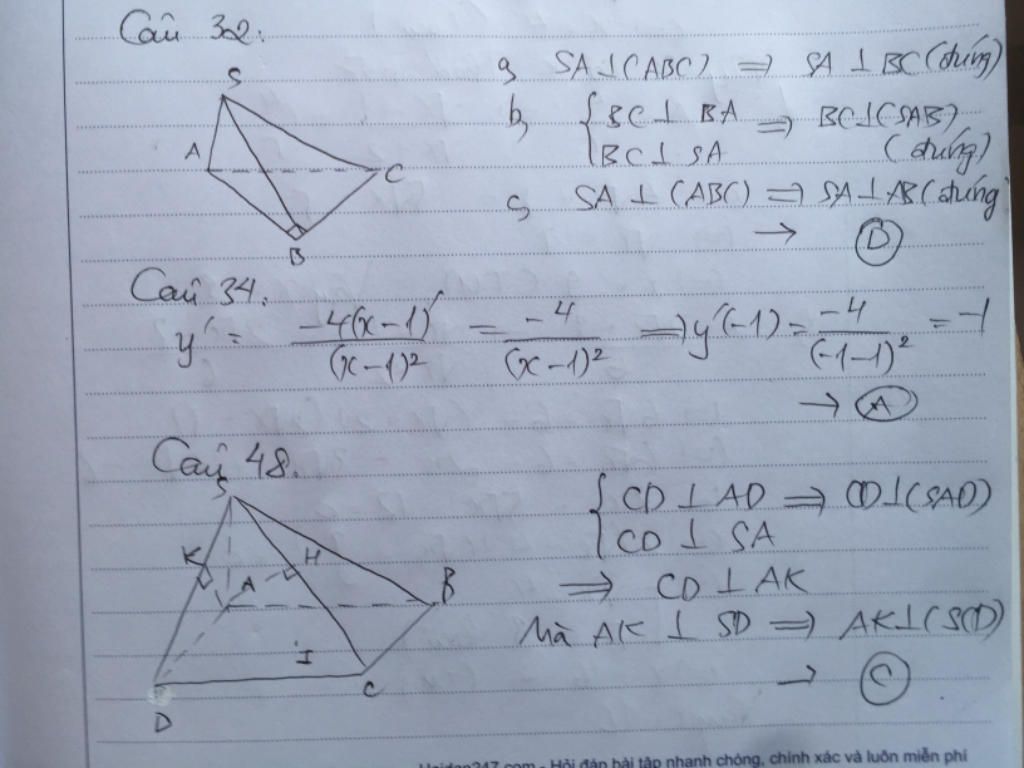 Câu 32:
S
A
C
B
a, SA ⊥ (ABC) ⇒ SA ⊥ BC (đúng)
b, { BC ⊥ BA
BC ⊥ SA ⇒ BC ⊥ (SAB)
(đúng)
c, SA ⊥ (ABC) ⇒ SA ⊥ AB (đúng
→ D
Câu 34.
y' = -4(x-1)' / (x-1)² = -4 / (x-1)² ⇒ y'(-1) = -4 / (-1-1)² = -1
→ A
Câu 48.
S
K
H
A
B
I
C
D
{ CD ⊥ AD ⇒ CD ⊥ (SAD)
CD ⊥ SA
⇒ CD ⊥ AK
Mà AK ⊥ SD ⇒ AK ⊥ (SCD)
→ C
Hoidap247.com - Hỏi đáp bài tập nhanh chóng, chính xác và luôn miễn phí